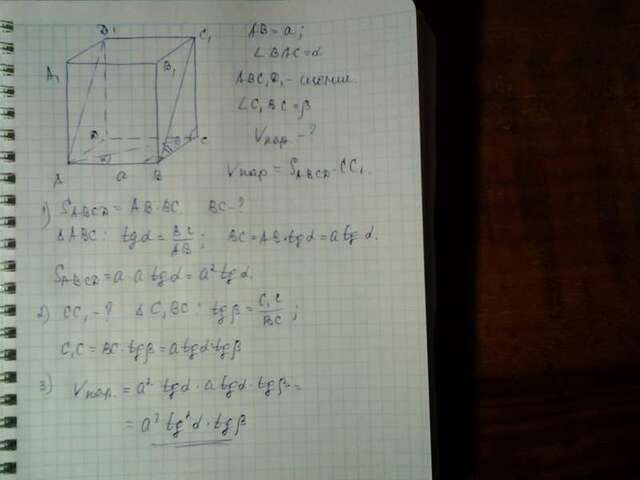 D₁ C₁
A₁ B₁
D C
A a B
AB = a;
∠BAC = α
ABC₁D₁ - сечение
∠C₁BC = β
Vпар - ?
Vпар = S_ABCD · CC₁.
1) S_ABCD = AB · BC. BC - ?
△ABC: tgα = BC/AB; BC = AB · tgα = a tgα.
S_ABCD = a · a tgα = a² tgα.
2) CC₁ - ? △C₁BC: tgβ = C₁C/BC;
C₁C = BC · tgβ = a tgα · tgβ
3) Vпар. = a² · tgα · a tgα · tgβ =
= a³ tg²α · tgβ